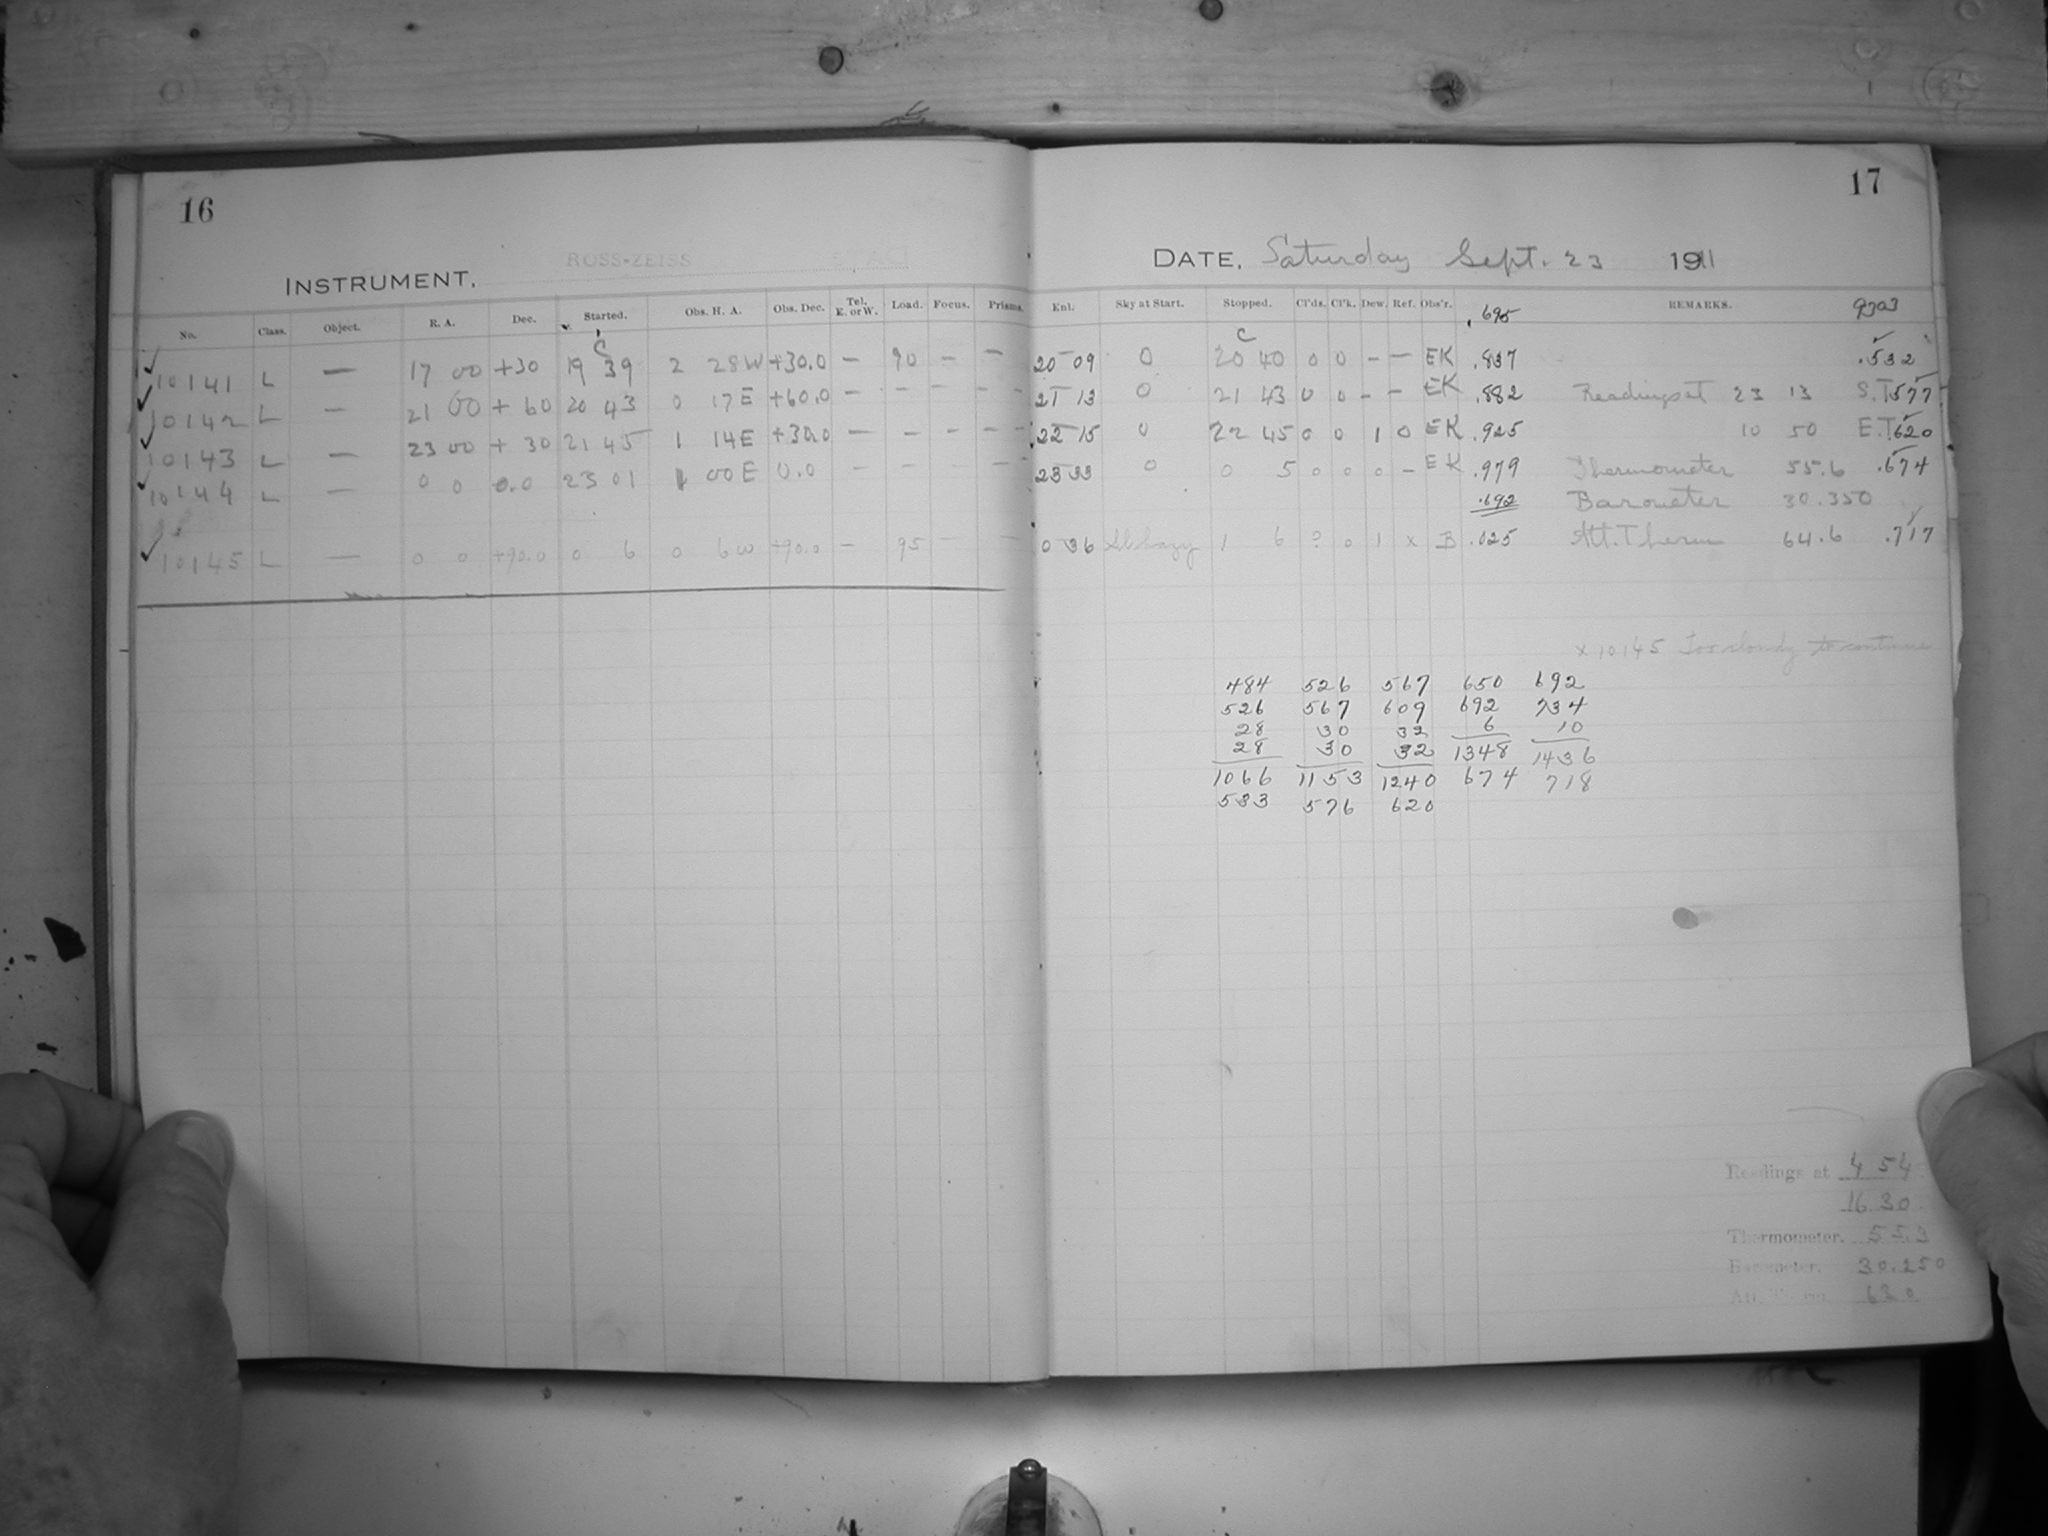 16
INSTRUMENT, ROSS-ZEISS
No. Class. Object. R. A. Dec. Started. Obs. H. A. Obs. Dec. Tel. E. or W. Load. Focus. Prisms.
C
10141 L — 17 00 +30 19 39 2 28W +30.0 — 90 — —
10142 L — 21 00 + 60 20 43 0 17E +60.0 — — — —
10143 L — 23 00 + 30 21 45 1 14E +30.0 — — — —
10144 L — 0 0 0.0 23 01 1 00E 0.0 — — — —
10145 L — 0 0 +90.0 0 6 0 6W +90.0 — 95 — —
17
DATE, Saturday Sept. 23 1911
Enl. Sky at Start. Stopped. Cl'ds. Cl'k. Dew. Ref. Obs'r. .695 REMARKS. 9303
C
20 09 0 20 40 0 0 — — EK .837 .532
21 13 0 21 43 0 0 — — EK .882 Readings at 23 13 S.T. 577
22 15 0 22 45 0 0 1 0 EK .925 10 50 E.T. 620
23 33 0 0 5 0 0 0 — EK .979 Thermometer 55.6 .674
.692 Barometer 30.350
0 36 Sl. hazy 1 6 ? 0 1 x B .025 Att. Therm 64.6 .717
x 10145 Too cloudy to continue
484 526 567 650 692
526 567 609 692 734
28 30 32 6 10
28 30 32 1348 1436
1066 1153 1240 674 718
533 576 620
Readings at 4 54
16 30
Thermometer. 55.3
Barometer. 30.250
Att. Therm. 63.0